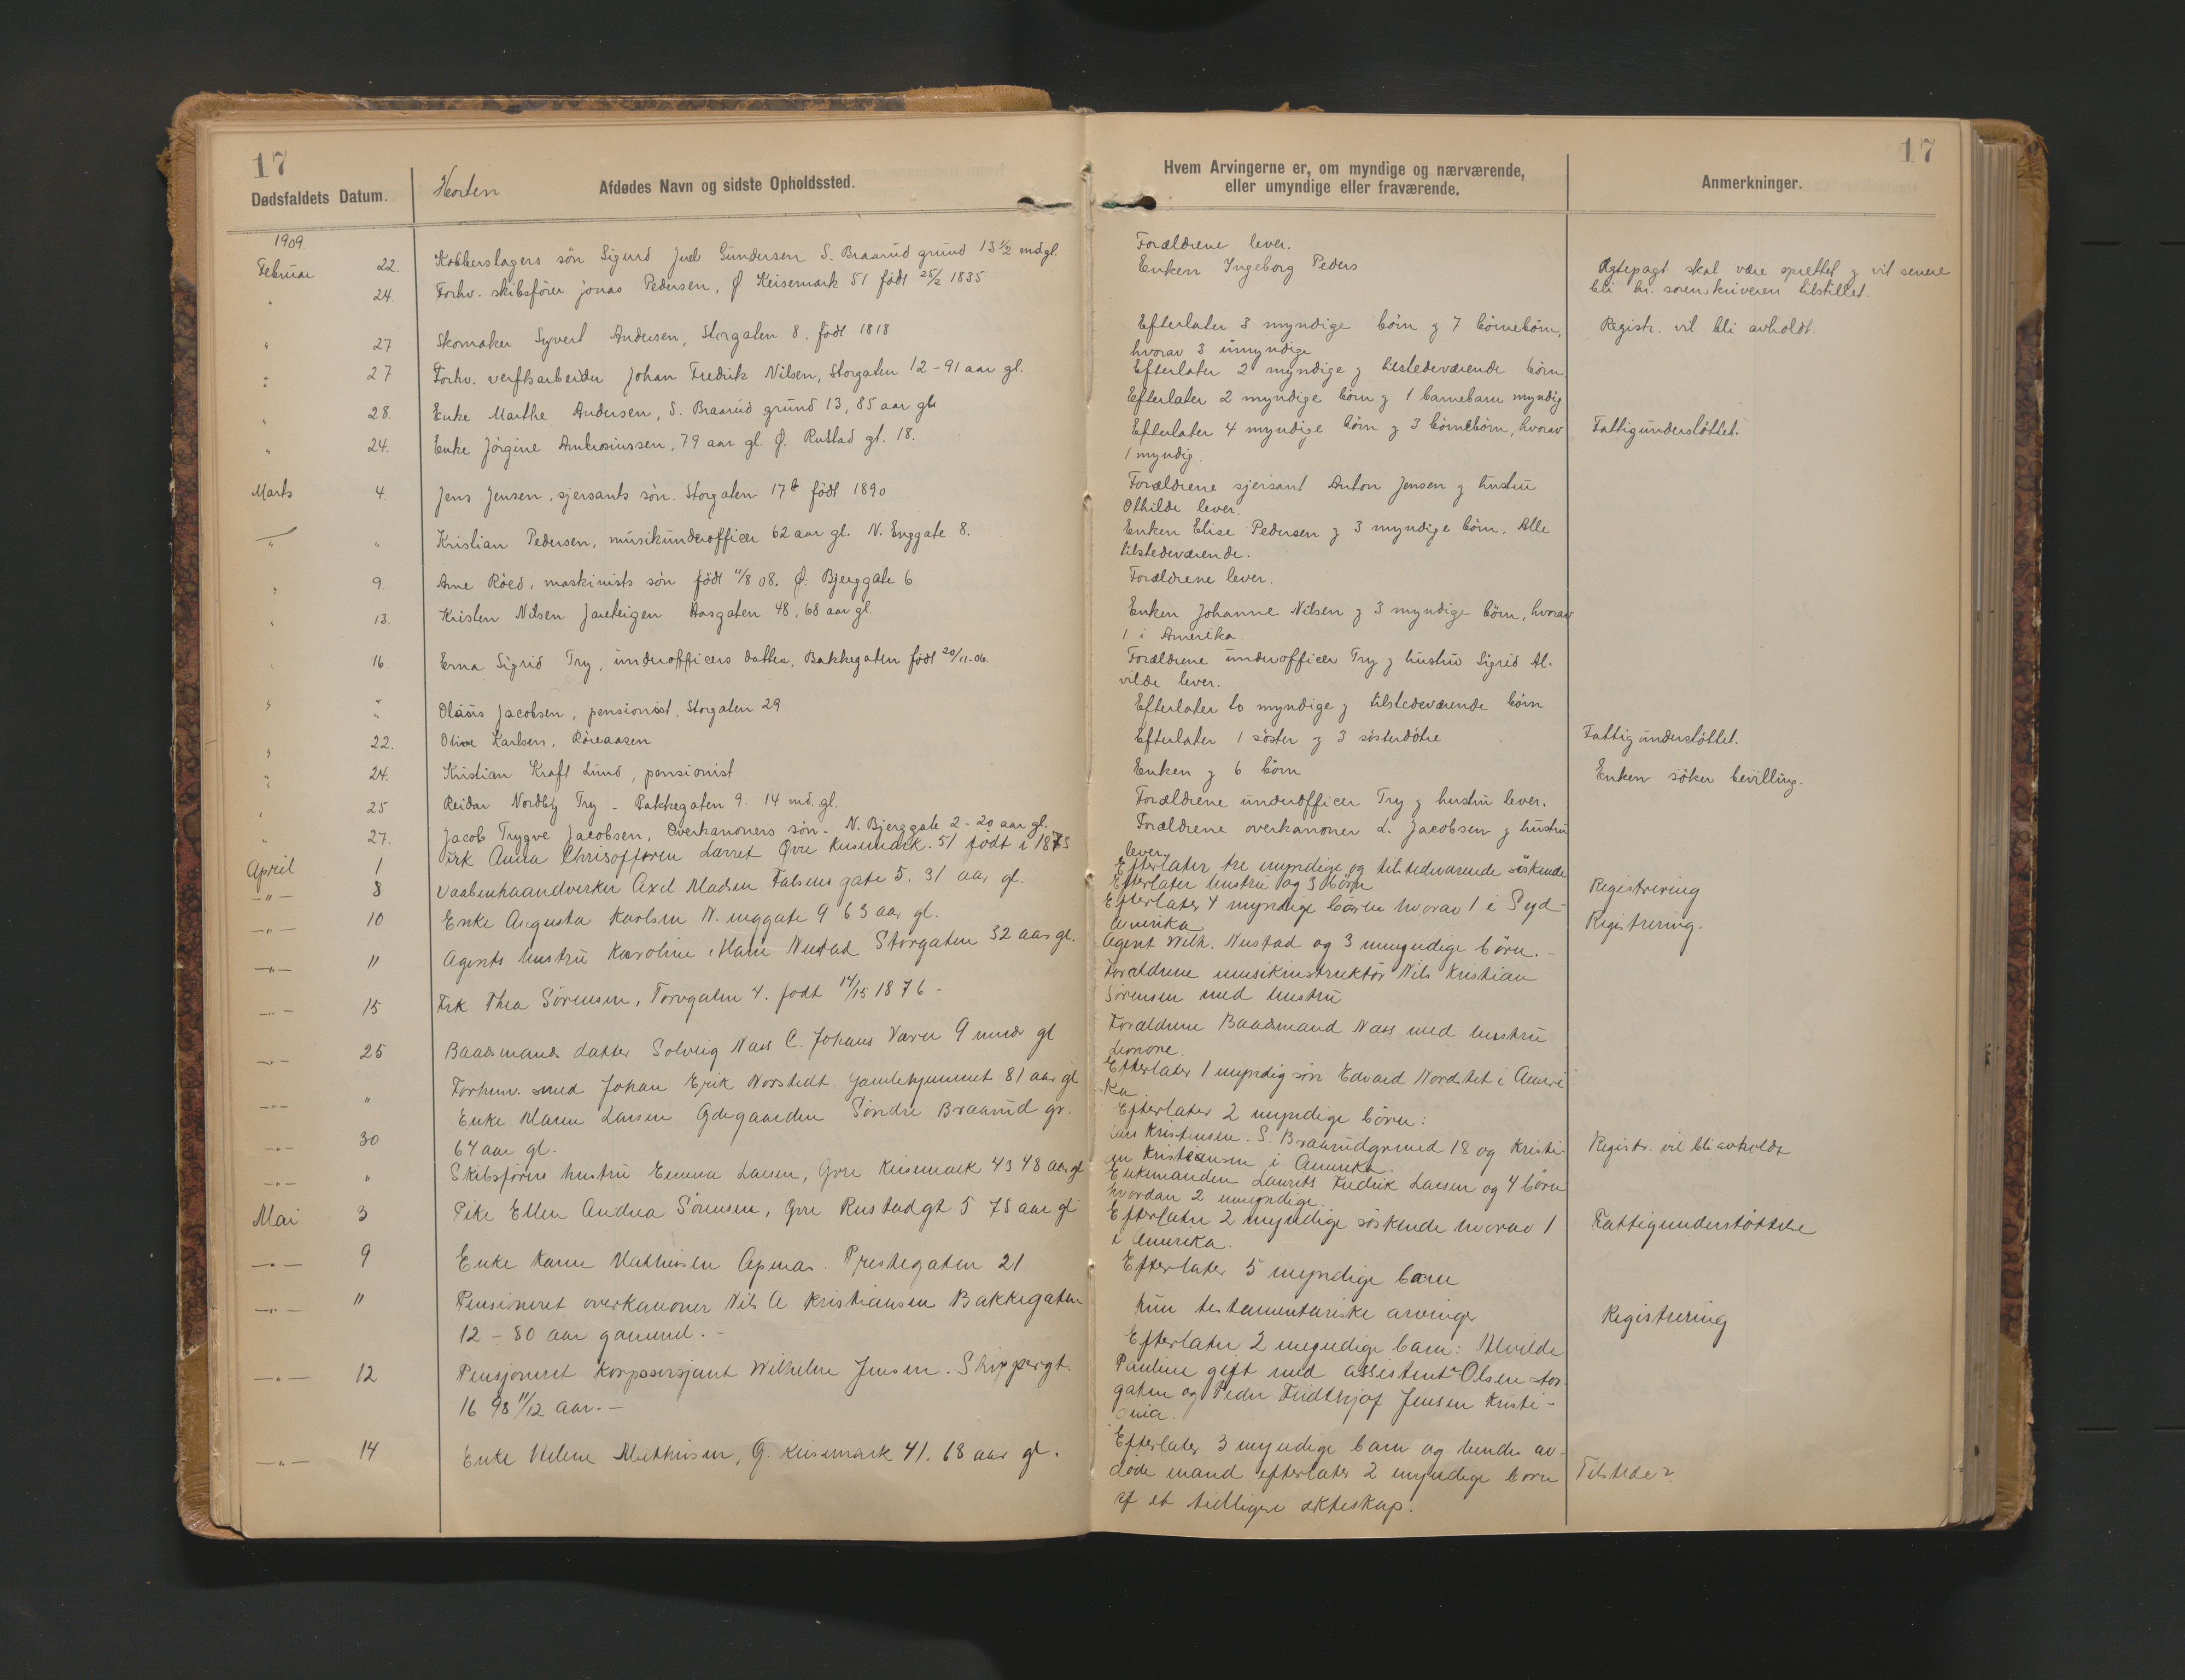 17
17
Dødsfaldets Datum.
Horten
Afdødes Navn og sidste Opholdssted.
Hvem Arvingerne er, om myndige og nærværende,
eller umyndige eller fraværende.
Anmerkninger.
1909.
Februar 22. Kobberslagers søn Sigurd Juel Gundersen S. Braarud grund 13 1/2 md gl. Forældrene lever.
" 24. Forhv. skibsfører Jonas Pedersen, Ø Keisemark 51 født 25/2 1835 Enken Ingeborg Peders Ægtepagt skal være oprettet og vil senere
bli hr. sorenskriveren tilstillet.
" 27 Skomaker Syvert Andersen, Storgaten 8. født 1818 Efterlater 3 myndige børn og 7 børnebørn, Registr. vil bli avholdt.
hvorav 3 umyndige
" 27 Forhv. verftsarbeider Johan Fredrik Nilsen, Storgaten 12 - 91 aar gl. Efterlater 2 myndige og tilstedeværende børn.
" 28. Enke Marthe Andersen, S. Braarud grund 13, 85 aar gl. Efterlater 2 myndige børn og 1 barnebarn myndig
" 24. Enke Jörgine Ambrosiussen, 79 aar gl. Ø. Rustad gt. 18. Efterlater 4 myndige børn og 3 børnebørn, hvorav Fattigunderstøttet.
1 myndig.
Marts 4. Jens Jensen, sjersants søn. Storgaten 17b født 1890 Forældrene sjersant Anton Jensen og hustru
Othilde lever.
" " Kristian Pedersen, musikunderofficer 62 aar gl. N. Enggate 8. Enken Elise Pedersen og 3 myndige børn. Alle
tilstedeværende.
" 9. Arne Röed, maskinists søn født 11/8 08. Ø. Bjerggate 6 Forældrene lever.
" 13. Kristen Nilsen Jareteigen Aasgaten 48, 68 aar gl. Enken Johanne Nilsen og 3 myndige børn, hvorav
1 i Amerika.
" 16. Erna Sigrid Try, underofficers datter, Bakkegaten født 20/11-06. Forældrene underofficer Try og hustru Sigrid Al-
vilde lever.
" " Olaus Jacobsen, pensionist, Storgaten 29 Efterlater to myndige og tilstedeværende børn
" 22. Olive Karlsen, Röreaasen Efterlater 1 söster og 3 sösterdötre Fattigunderstøttet.
" 24. Kristian Kraft Lund, pensionist Enken og 6 børn Enken söker bevilling.
" 25 Reidar Nordby Try - Bakkegaten 9. 14 md. gl. Forældrene underofficer Try og hustru lever.
" 27. Jacob Trygve Jacobsen, Overkanoners søn. N. Bjerggate 2 - 20 aar gl. Forældrene overkanoner L. Jacobsen og hustru
lever.
April 1 Frk Anna Chrisoffersen Lærret Øvre Keisemark. 51 født i 1873 Efterlater tre myndige og tilstedeværende söskende
-"- 8 Vaabenhaandverker Axel Madsen Falsens gate 5. 31 aar gl. Efterlater hustru og 3 børn Registrering
-"- 10 Enke Augusta Karlsen N. enggate 9 63 aar gl. Efterlater 4 myndige børn hvorav 1 i Syd- Registrering.
Amerika
-"- " Agents hustru Karoline Marie Nustad Storgaten 32 aar gl. Agent Wilh. Nustad og 3 umyndige børn. -
-"- 15 Frk Thea Sørensen, Torvgaten 4. født 14/15 1876 - Forældrene musikinstruktør Nils Kristian
Sørensen med hustru
-"- 25 Baadsmands datter Solveig Næss C. Johans Værn 9 mndr gl Forældrene Baadsmand Næss med hustru
Leonore.
-"- " Forhenv. smed Johan Erik Norstedt. Gamlehjemmet 81 aar gl Efterlater 1 myndig søn Edvard Nordstet i Ameri
ka.
-"- 30 Enke Maren Larsen Ødegaarden Søndre Braarud gr. Efterlater 2 myndige børn:
64 aar gl. Lars Kristensen. S. Braarudgrund 18 og Kristi- Registr. vil bli avholdt
an Kristiansen i Amerika.
-"- " Skibsførers hustru Emma Larsen, Øvre Keisemark 43 48 aar gl Enkemanden Laurits Fredrik Larsen og 4 børn
hvordan 2 umyndige.
Mai 3 Pike Ellen Andrea Sørensen, Øvre Rustadgt 5 75 aar gl Efterlater 2 myndige söskende hvorav 1 Fattigunderstøttelse
i Amerika.
-"- 9 Enke Karen Mathisen Apenæs. Prestegaten 21 Efterlater 5 myndige barn
-"- " Pensioneret overkanoner Nils A Kristiansen Bakkegaten Kun testamentariske arvinger Registrering
12 - 80 aar gammel. -
-"- 12 Pensjoneret Korpssersjant Wilhelm Jensen. Skippergt. Efterlater 2 myndige barn: Alvilde
16 98 11/12 aar. - Pauline gift med assistent Olsen Stor-
gaten og Peder Fridthjof Jensen Kristi-
ania.
-"- 14 Enke Helene Mathisen, Ø Keisemark 41. 68 aar gl. Efterlater 3 myndige barn og hendes av-
døde mand efterlater 2 myndige børn Tilstede?
af et tidligere ekteskap.